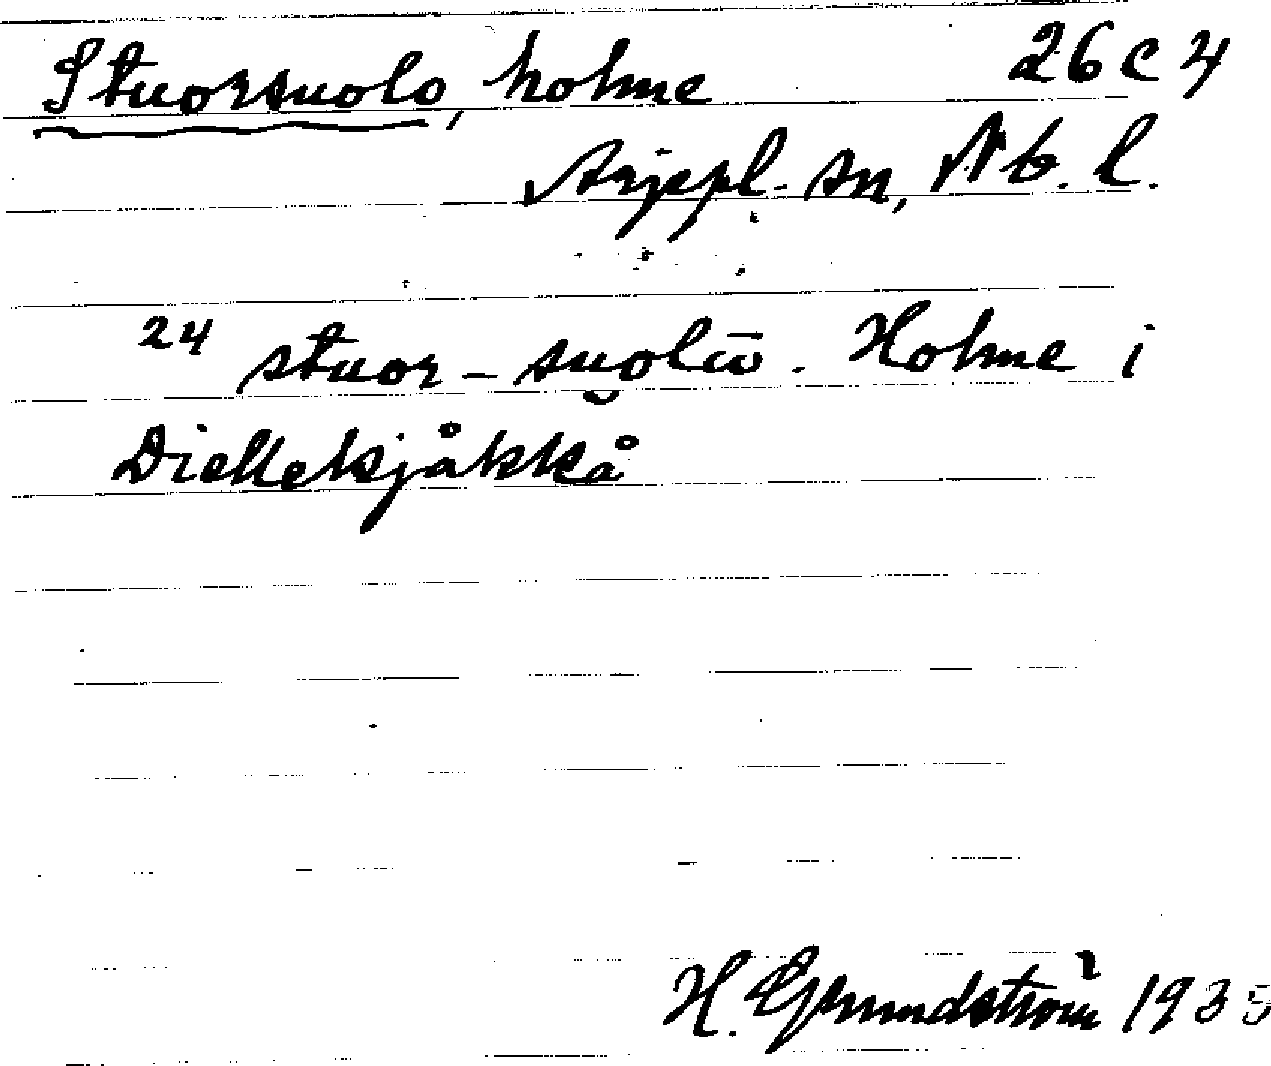 Stuorsuolo, holme 26 C 4
Arjepl. sn, Nb. l.
24 stuor-suolū. Holme i
Diellekjåkkå
H. Grundström 1935